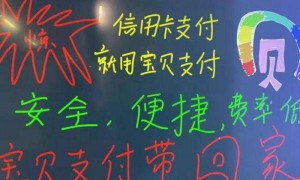 信用卡支付
就用宝贝支付
贝
安全，便捷，费率低
宝贝支付带回家